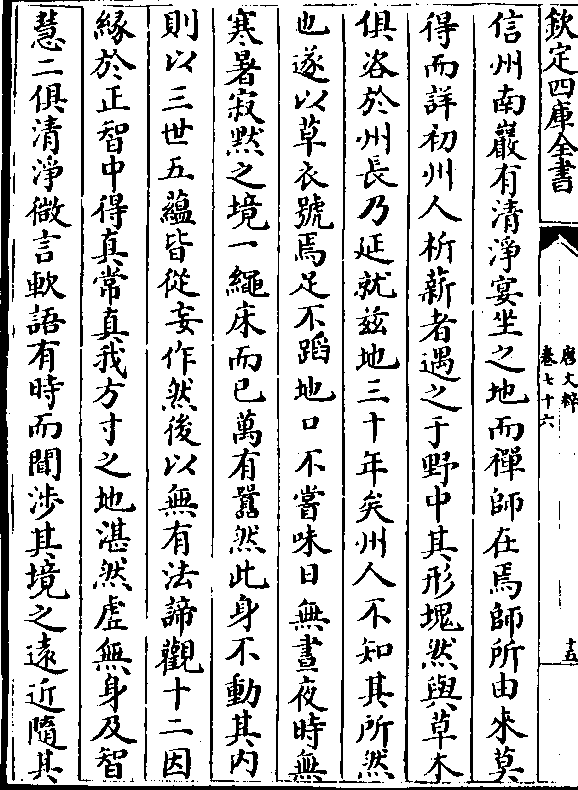 欽定四庫全書
唐文粹
卷七十六
十五
信州南巖有清淨宴坐之地而禪師在焉師所由來莫
得而詳初州人析薪者遇之于野中其形塊然與草木
俱咨於州長乃延就兹地三十年矣州人不知其所然
也遂以草衣號焉足不蹈地口不嘗味日無晝夜時無
寒暑寂黙之境一繩床而已萬有囂然此身不動其内
則以三世五蘊皆從妄作然後以無有法諦觀十二因
緣於正智中得真常真我方寸之地湛然虛無身及智
慧二俱清淨微言軟語有時而聞涉其境之遠近隨其